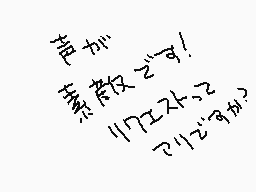 声が
素敵です!
リクエストって
アリですか?